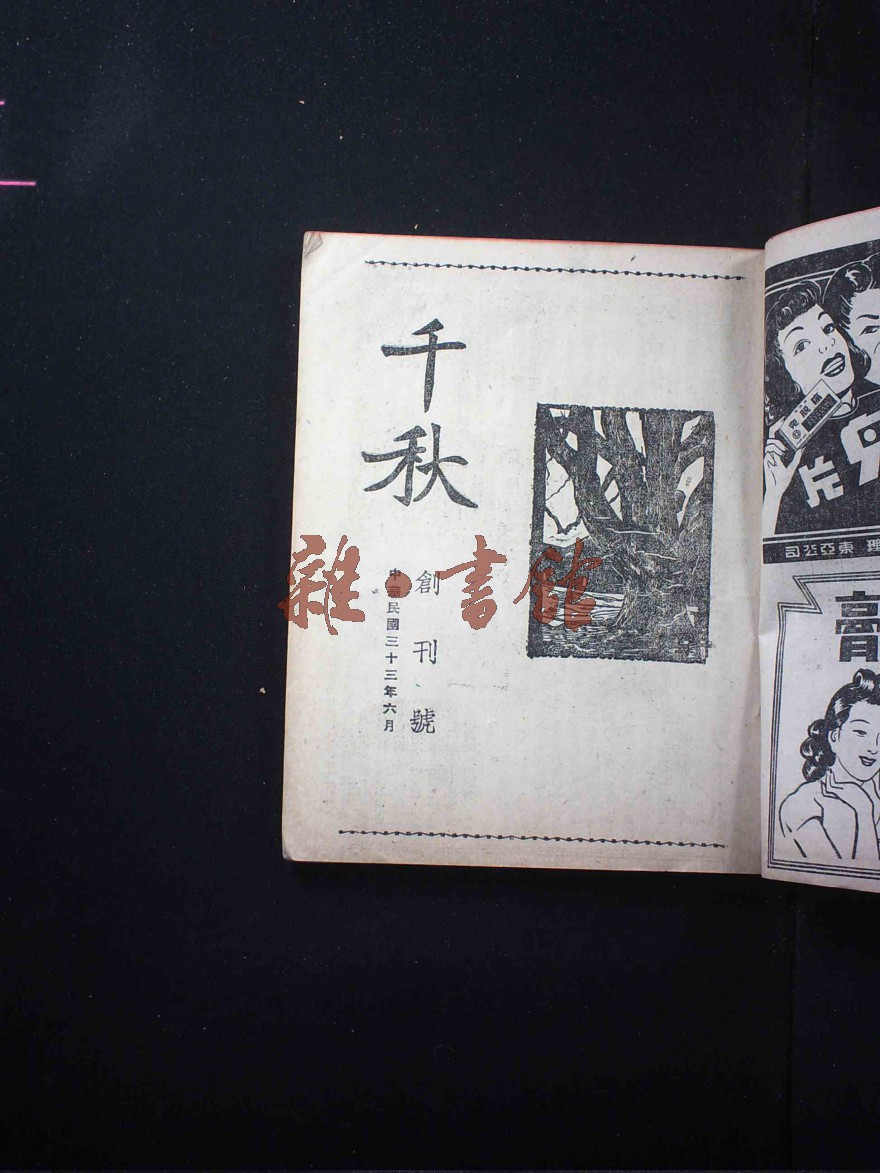 千秋
創刊號
中華民國三十三年六月
雜·書館
片
理 東亞公司
膏